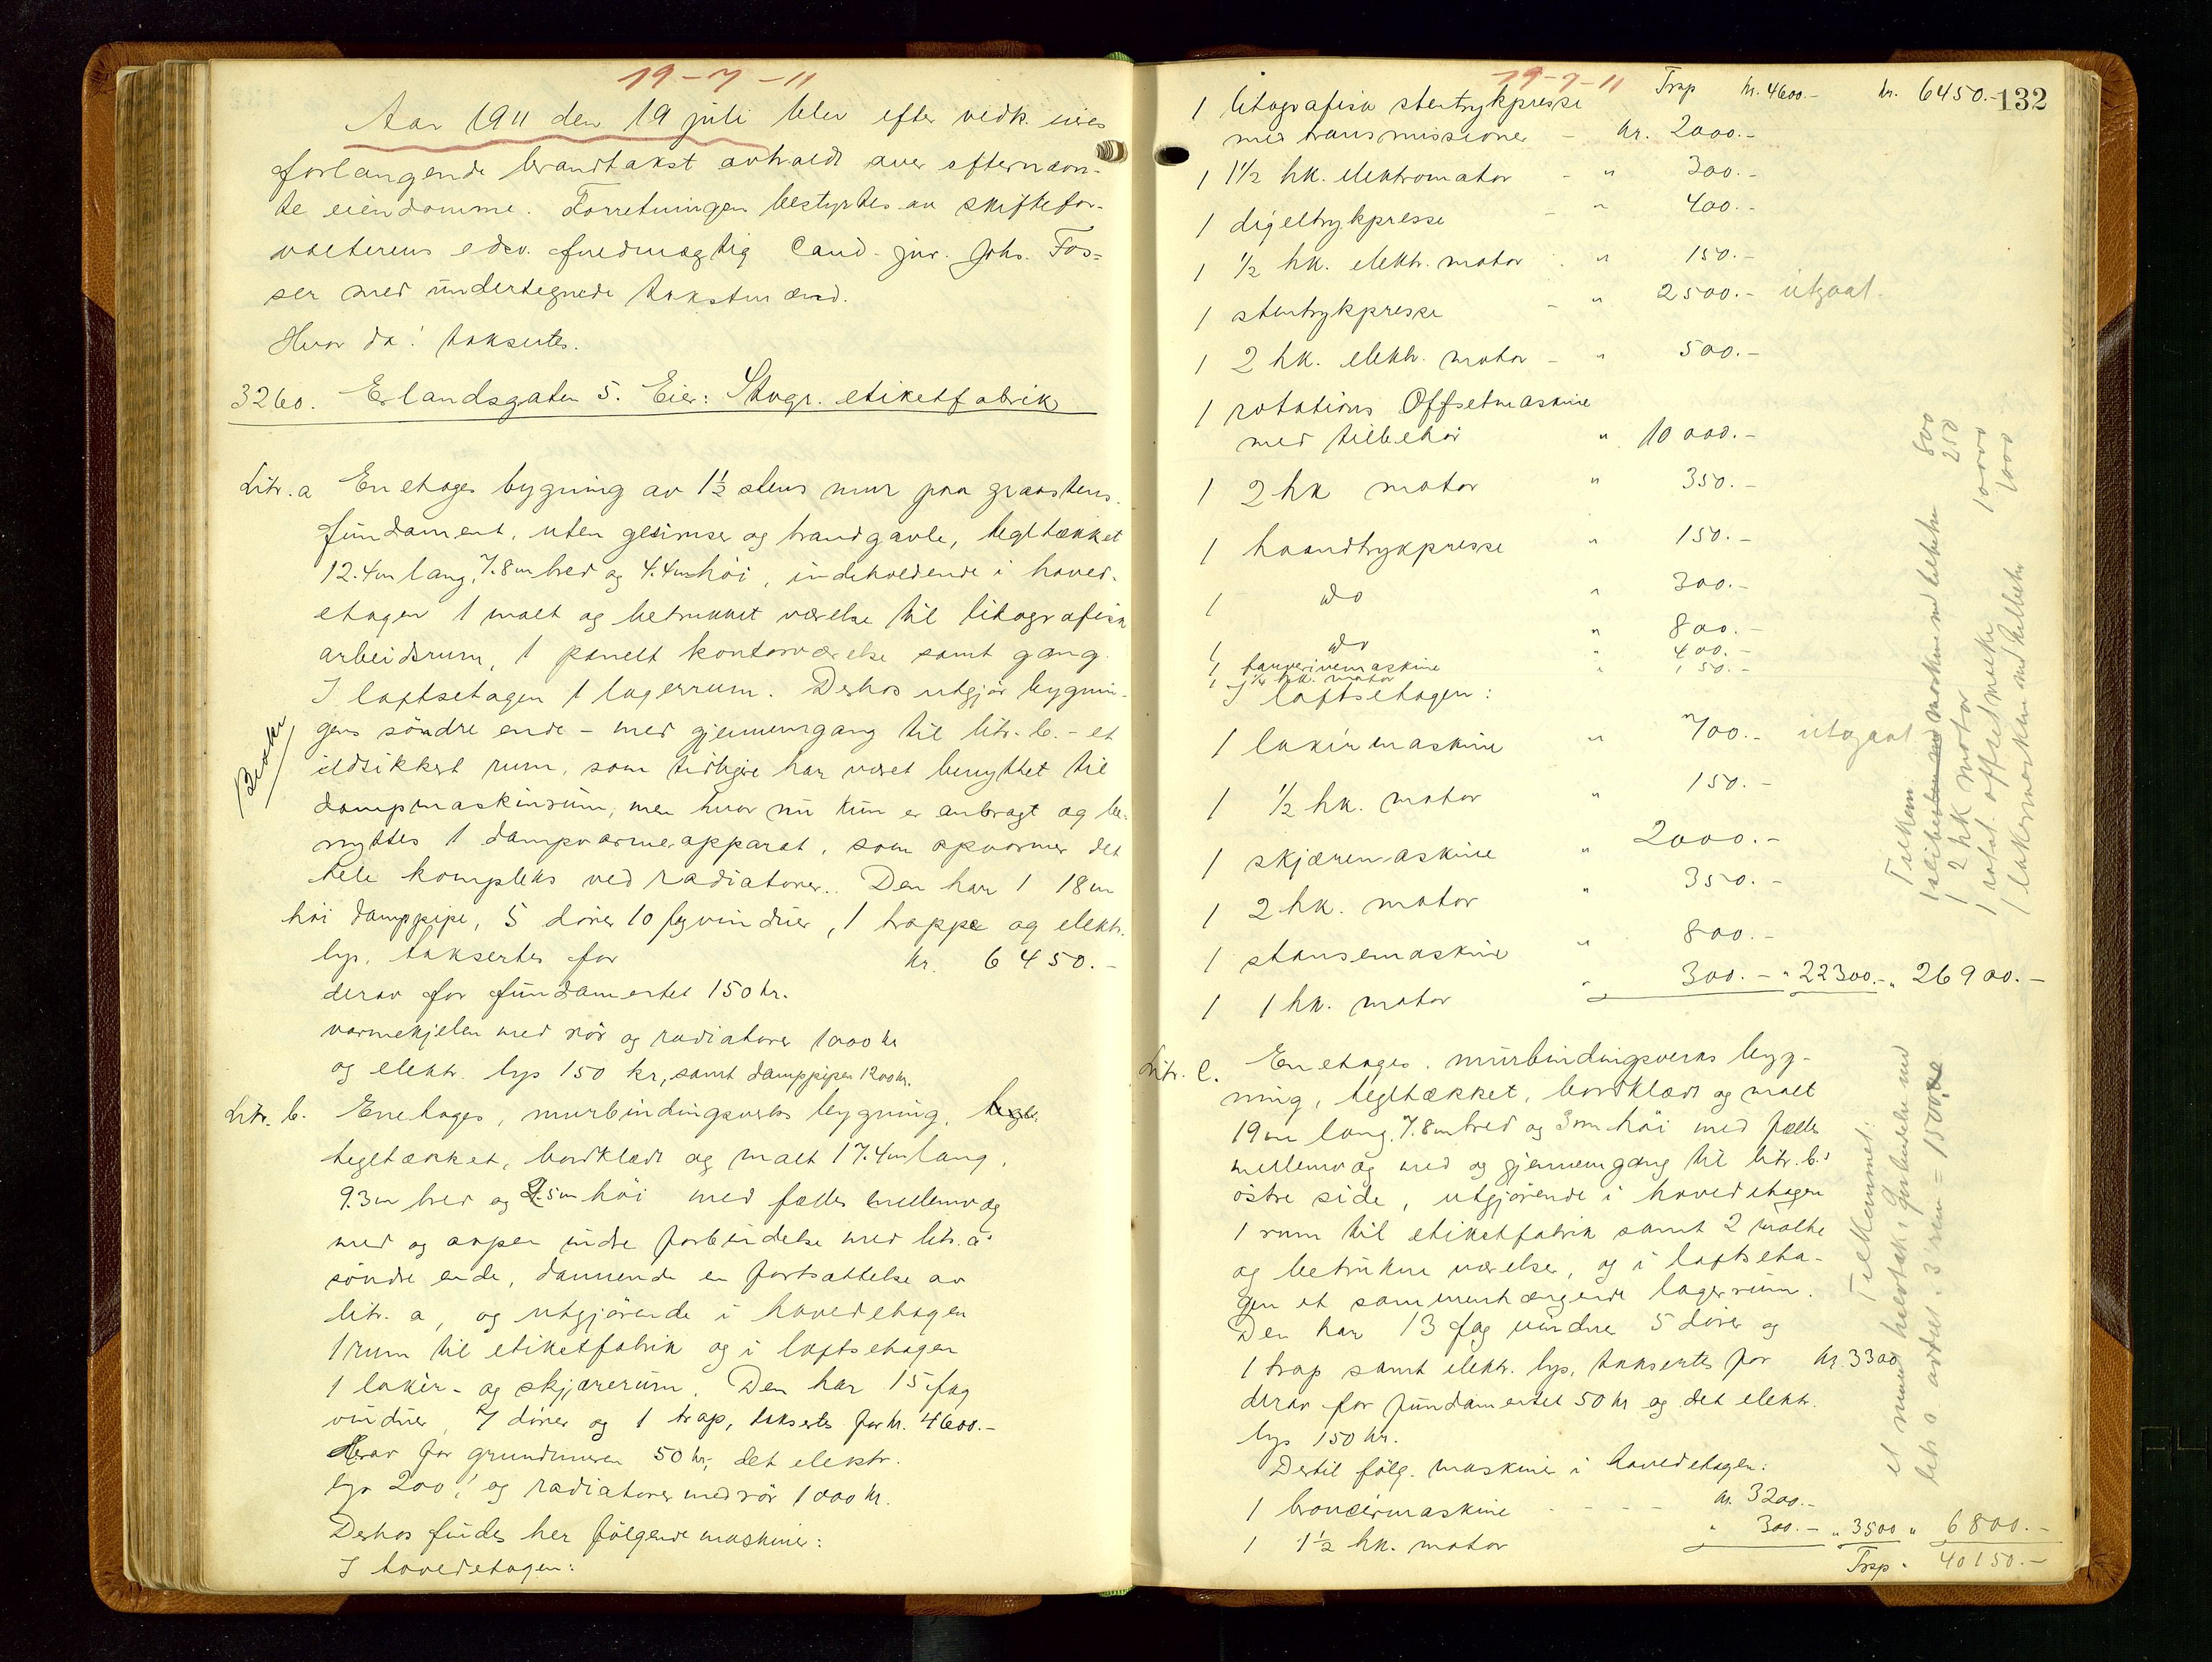 19-7-11
Aar 1911 den 19 juli blev efter vedk. eiers
forlangende brandtakst avholdt over efternævn-
te eiendomme. Forretningen bestyrtes av skiftefor-
valterens edsv. fuldmægtig Cand. jur. Johs. Fos-
ser med undertegnede takstmænd.
Hvor da! taksertes.
3260. Erlandsgaten 5. Eier: Stvgr. etiketfabrik
Litr. a En etages bygning av 1½ stens mur paa graastens
fundament, uten gesimser og brandgavle, teglt​ækket
12.4m lang, 7.8m bred og 4.4m høi, indeholdende i hoved-
etagen 1 malt og betrukket værelse til litografisk
arbeidsrum, 1 panelt kontorværelse samt gang.
I loftsetagen 1 lagerrum. Derhos utgjør bygnin-
gens søndre ende - med gjennemgang til litr. b. - et
ildsikkert rum, som tidligere har været benyttet til
dampmaskinrum, men hvor nu kun er anbragt og be-
nyttes 1 dampvarmeapparat, som opvarmer det
hele kompleks ved radiatorer. Den har 1 18m
høi damppipe, 5 dører 10 fag vinduer, 1 trappe og elektr.
lys, taksertes for kr. 6450.-
derav for fundamentet 150 kr.
varmekjelen med rør og radiatorer 1000 kr
og elektr. lys 150 kr, samt damppipen 1200 kr.
Litr. b. En etages, murbindingsverks bygning, tegl.
teglt​ækket, bordklædt og malt 17.4m lang,
9.3m bred og 2.5m høi med fælles mellemvæg
med og aapen indre forbindelse med litr. a's
søndre ende, dannende en fortsættelse av
litr. a, og utgjørende i hovedetagen
1 rum til etiketfabrik og i loftsetagen
1 lakèr- og skjærerum. Den har 15 fag
vinduer, 7 dører og 1 trap, taksertes for kr. 4600.-
Herav for grundmuren 50 kr, det elektr.
lys 200, og radiatorer med rør 1000 kr.
Derhos findes her følgende maskiner:
I hovedetagen:
19-7-11
Trsp kr. 4600.- kr. 6450.- 132
1 litografisk stentrykpresse
med transmissioner - kr. 2000.-
1 1½ hk. elektromotor - " 300.-
1 digeltrykpresse - " 400.-
1 ½ hk. elektr. motor - " 150.-
1 stentrykpresse - " 2500.- utgaat.
1 2 hk. elektr. motor - " 500.-
1 rotations Offsetmaskine
med tilbehør " 10000.-
1 2 hk motor " 350.-
1 haandtrykpresse " 150.-
1 do " 300.-
1 do " 800.-
1 " 400.-
1 ½ hk. motor " 150.-
I loftsetagen:
1 lakèrmaskine " 700.- utgaat
1 ½ hk. motor " 150.-
1 skjæremaskine " 2000.-
1 2 hk. motor " 350.-
1 stansemaskine " 800.-
1 1 hk. motor " 300.- " 22300.- " 26900.-
Tilkom
1 slibe maskine m tilbehør 800
1 2 hk motor 250
1 rotat. offset maskine 10000
1 lakermaskin med tilbehør 1000
Litr. c. En etages, murbindingsverks byg-
ning, teglt​ækket, bordklædt og malt
19m lang, 7.8m bred og 3m høi med fælles
mellemvæg med og gjennemgang til litr. b.'s
østre side, utgjørende i hovedetagen
1 rum til etiketfabrik samt 2 malte
og betrukne værelser, og i loftseta-
gen et sammenhængende lagerrum.
Den har 13 fag vinduer 5 dører og
1 trap samt elektr. lys, taksertes for kr. 3300
derav for fundamentet 50 kr og det elektr.
lys 150 kr.
Dertil følg. maskiner i hovedetagen:
1 broncèrmaskine - - - - kr. 3200.-
1 1½ hk. motor " 300.- " 3500 " 6800.-
Trsp. 40150.-
Tilkommet:
et muret halvtak i forbindelse med